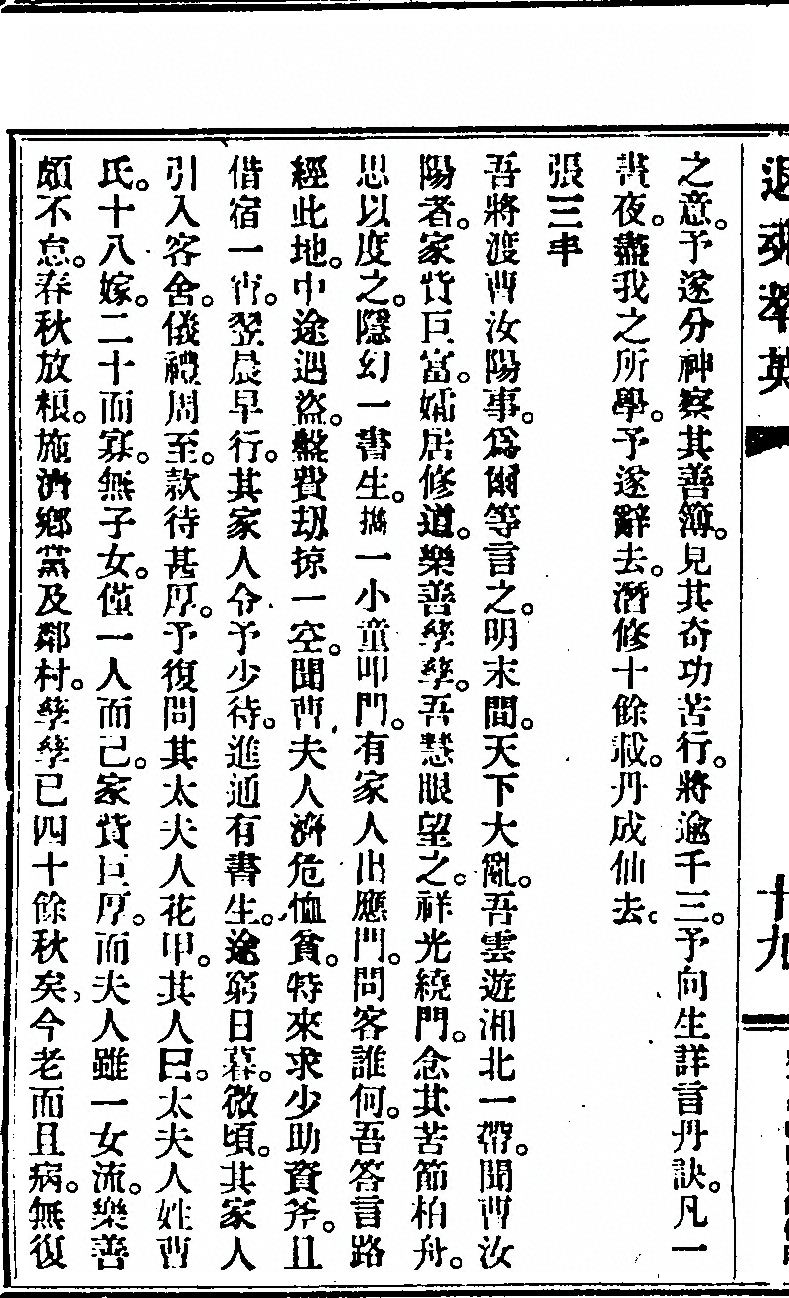 十九
之意。予遂分神察其善簿。見其奇功苦行。將逾千三。予向生詳言丹訣。凡一
晝夜。盡我之所學。予遂辭去。潛修十餘載。丹成仙去。
張三丰
吾將渡曹汝陽事。爲爾等言之。明末間。天下大亂。吾雲遊湘北一帶。聞曹汝
陽者。家貲巨富。孀居修道。樂善孳孳。吾慧眼望之。祥光繞門。念其苦節柏舟。
思以度之。隱幻一書生。攜一小童叩門。有家人出應門。問客誰何。吾答言路
經此地。中途遇盜。盤費刧掠一空。聞曹夫人濟危恤貧。特來求少助資斧。且
借宿一宵。翌晨早行。其家人令予少待。進通有書生。途窮日暮。微頃。其家人
引入客舍。儀禮周至。款待甚厚。予復問其太夫人花甲。其人曰。太夫人姓曹
氏。十八嫁。二十而寡。無子女。僅一人而己。家貲巨厚。而夫人雖一女流。樂善
頗不怠。春秋放粮。施濟鄉黨及鄰村。孳孳已四十餘秋矣。今老而且病。無復